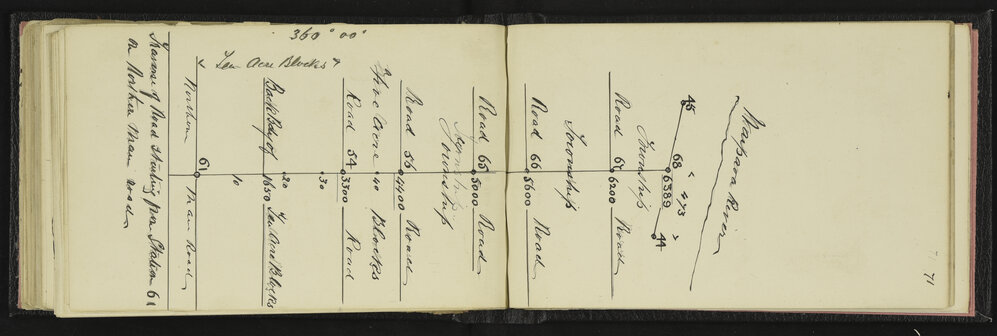 Traverse of Road Starting from Station 61
on Northern Main road
Northern 61 Main Road
360° 00'
< Ten Acre Blocks >
10
Back Bdy of 1650 Ten Acre Blocks
20
30
Road 54 3300 Road
Five Acre 40 Blocks
Road 56 4400 Road
Township
Road 65 5000 Road
Road 66 5600 Road
Township
Road 67 6200 Road
Township
45 68 6389 44
< 493 >
River
71
71